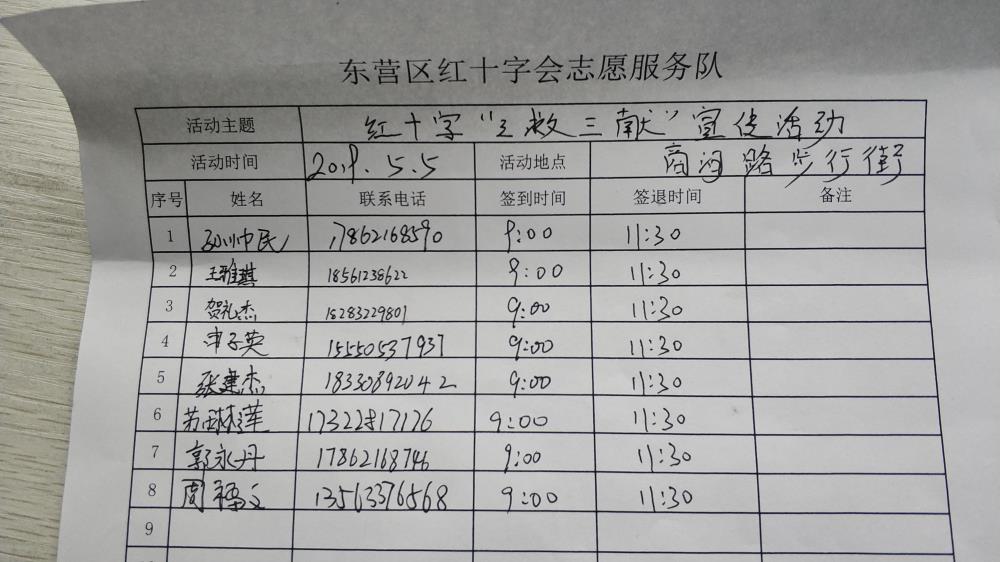 东营区红十字会志愿服务队
活动主题 红十字“三救三献”宣传活动
活动时间 2019.5.5 活动地点 商河路步行街
序号 姓名 联系电话 签到时间 签退时间 备注
1 17862168590 9:00 11:30
2 王雅琪 18561238622 9:00 11:30
3 贺礼杰 18283229801 9:00 11:30
4 申子英 15550537937 9:00 11:30
5 张建杰 18330892042 9:00 11:30
6 17322817176 9:00 11:30
7 郭永丹 17862168746 9:00 11:30
8 周福文 13563376568 9:00 11:30
9